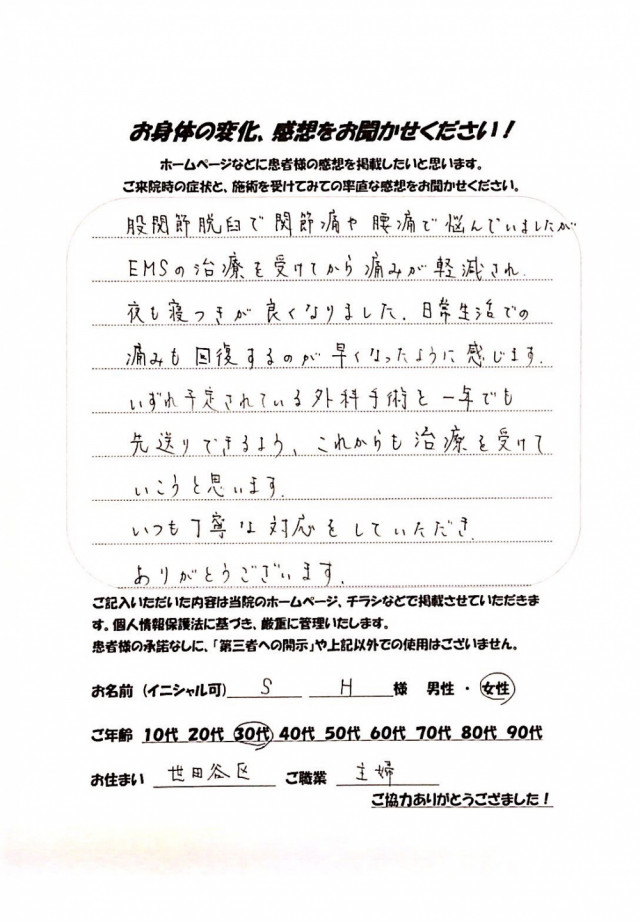 お身体の変化、感想をお聞かせください！
ホームページなどに患者様の感想を掲載したいと思います。
ご来院時の症状と、施術を受けてみての率直な感想をお聞かせください。
股関節脱臼で関節痛や腰痛で悩んでいましたが
EMSの治療を受けてから痛みが軽減され、
夜も寝つきが良くなりました。日常生活での
痛みも回復するのが早くなったように感じます。
いずれ予定されている外科手術を一年でも
先送りできるよう、これからも治療を受けて
いこうと思います。
いつも丁寧な対応をしていただき、
ありがとうございます。
ご記入いただいた内容は当院のホームページ、チラシなどで掲載させていただきま
す。個人情報保護法に基づき、厳重に管理いたします。
患者様の承諾なしに、「第三者への開示」や上記以外での使用はございません。
お名前（イニシャル可） S H 様 男性・女性
ご年齢 10代 20代 30代 40代 50代 60代 70代 80代 90代
お住まい 世田谷区 ご職業 主婦
ご協力ありがとうござました！